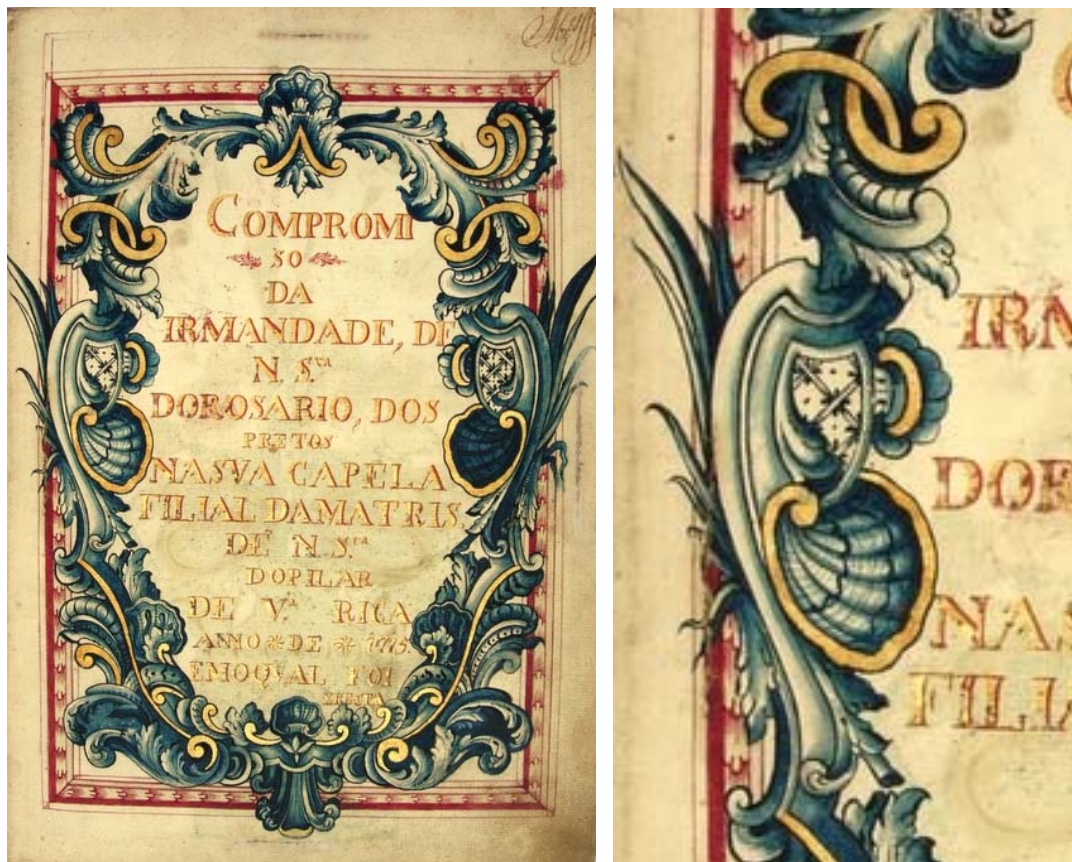 COMPROMI
SO
DA
IRMANDADE, DE
N. S.ra
DOROSARIO, DOS
PRETOS
NASVA CAPELA
FILIAL DAMATRIS.
DE N. S.ra
DOPILAR
DE V.a RICA
ANNO * DE * 1775.
EMOQVAL FOI
IRM
DOR
NAS
FILIA